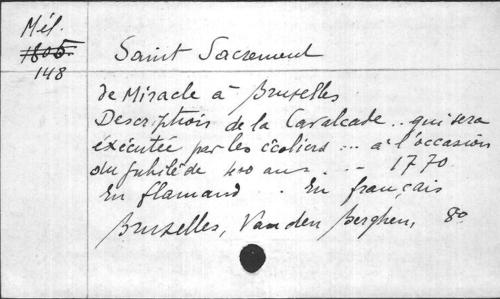 Mél.
1806.
148
Saint Sacrement
de Miracle à Bruxelles
Descriptiois de la Cavalcade .. qui sera
éxécutée par les écoliers ... à l'occasion
du Jubilé de 400 ans. .. 1770
En flamand . . En français
Bruxelles, Van den Berghen, 8º